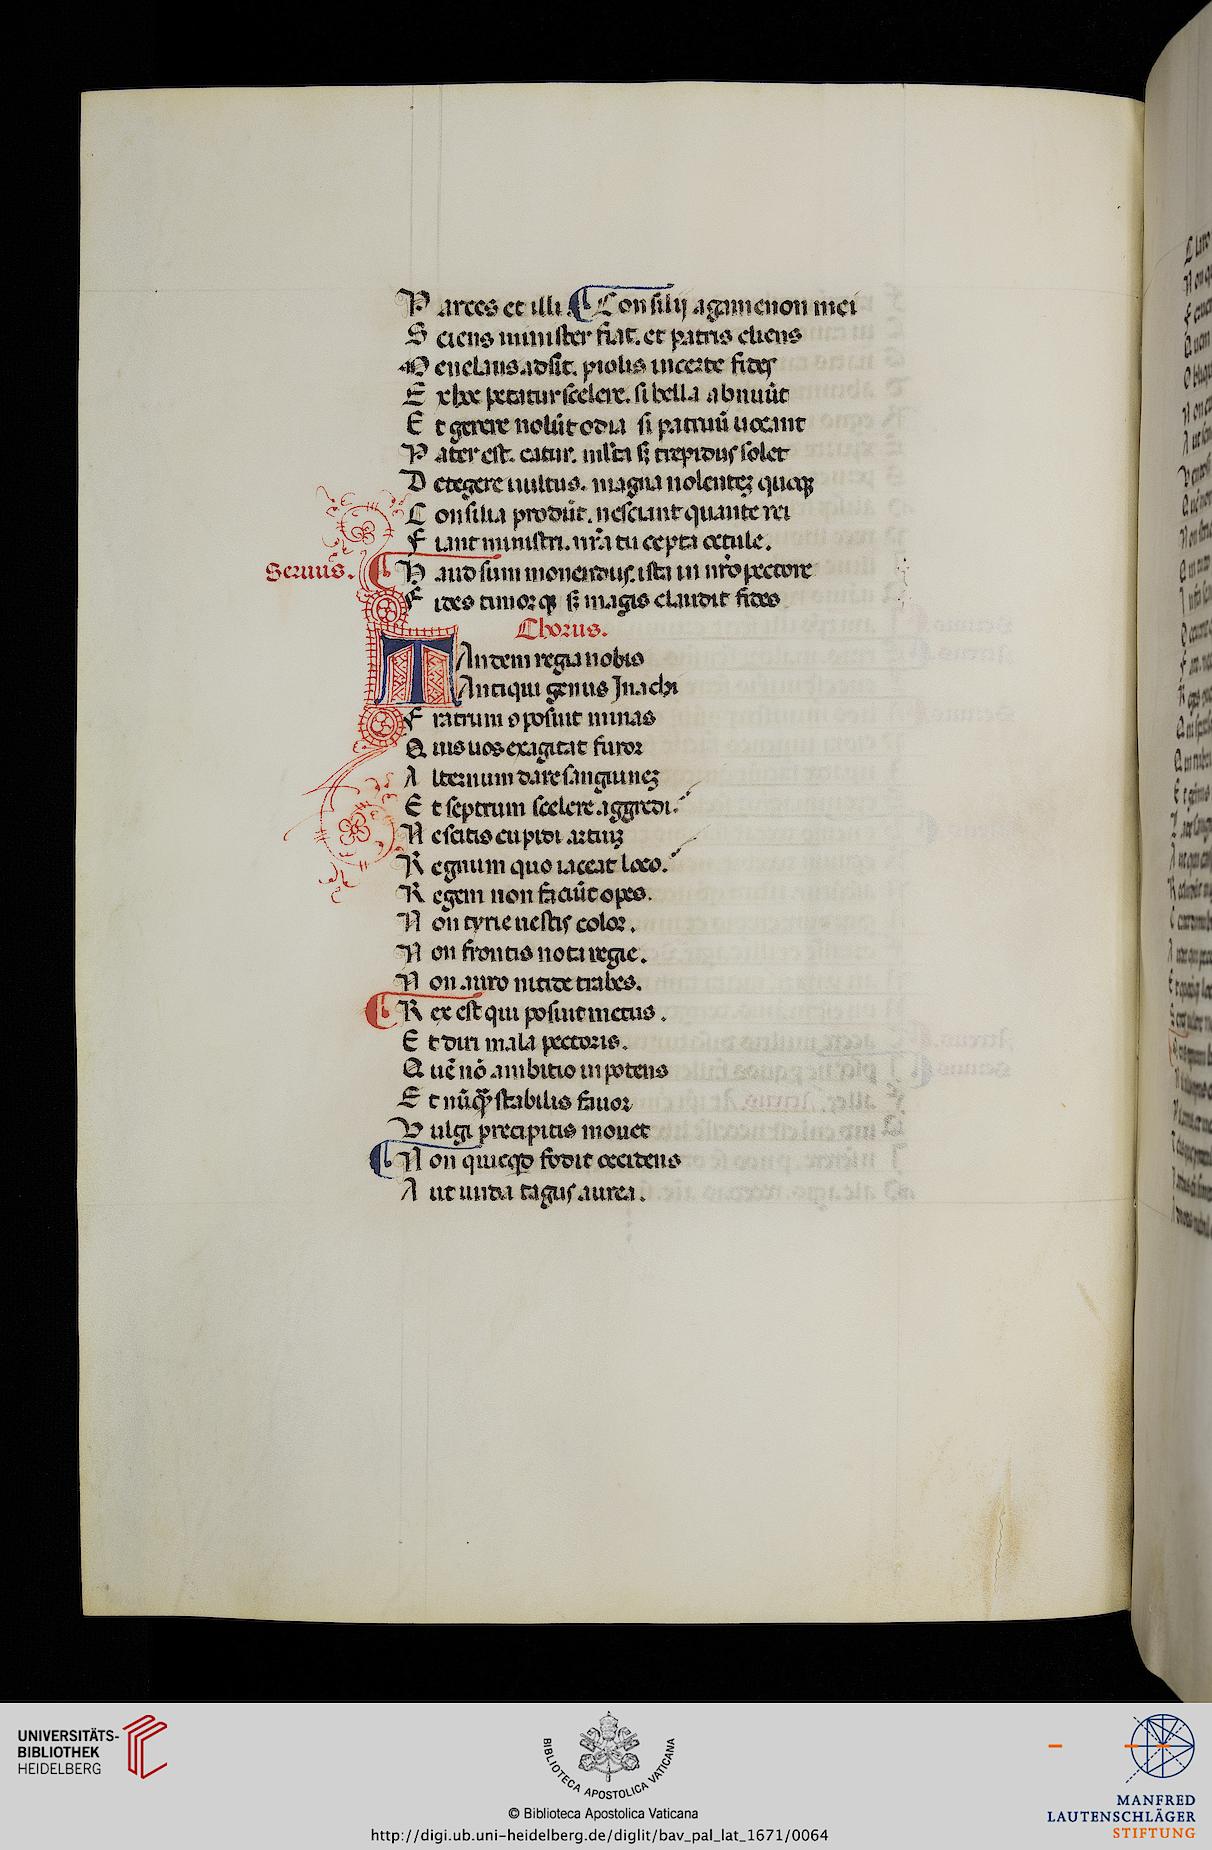 Partes et illi. Consilij agamenon mei
Sciens minister fiat. et patris cliens
Menelaus adsit. prolis incerte fides
Ex hoc petatur scelere. si bella abnuūt
Et gerere nolūt odia si patruū uocant
Pater est. eatur. mlta sꝫ trepidus solet
Detegere uultus. magna nolentes quoqꝫ
Consilia produt. nesciant quante rei
Fiant ministri. nra tu cepta occule.
Seruus. Haud sum monendus. ista in nro pectore
Fides timorqꝫ sꝫ magis claudit fides
Chorus.
TAndem regia nobis
Antiqui genus Inachi
Fratrum ꝯposuit minas
Quis uos exagitat furor
Alternum dare sanguinez
Et septrum scelere aggredi.
Nescitis cupidi artiuz
Regnum quo iaceat loco.
Regem non faciūt opes.
Non tyrie uestis color.
Non frontis nota regie.
Non auro nitide trabes.
Rex est qui posuit metus.
Et diri mala pectoris.
Quē nō ambitio inpotens
Et nūqꝫ stabilis fauor
Vulgi precipitis mouet
Non quicqd fodit occidens
Aut unda tagus aurea.
UNIVERSITÄTS-
BIBLIOTHEK
HEIDELBERG
BIBLIOTECA APOSTOLICA VATICANA
© Biblioteca Apostolica Vaticana
http://digi.ub.uni-heidelberg.de/diglit/bav_pal_lat_1671/0064
MANFRED
LAUTENSCHLÄGER
STIFTUNG